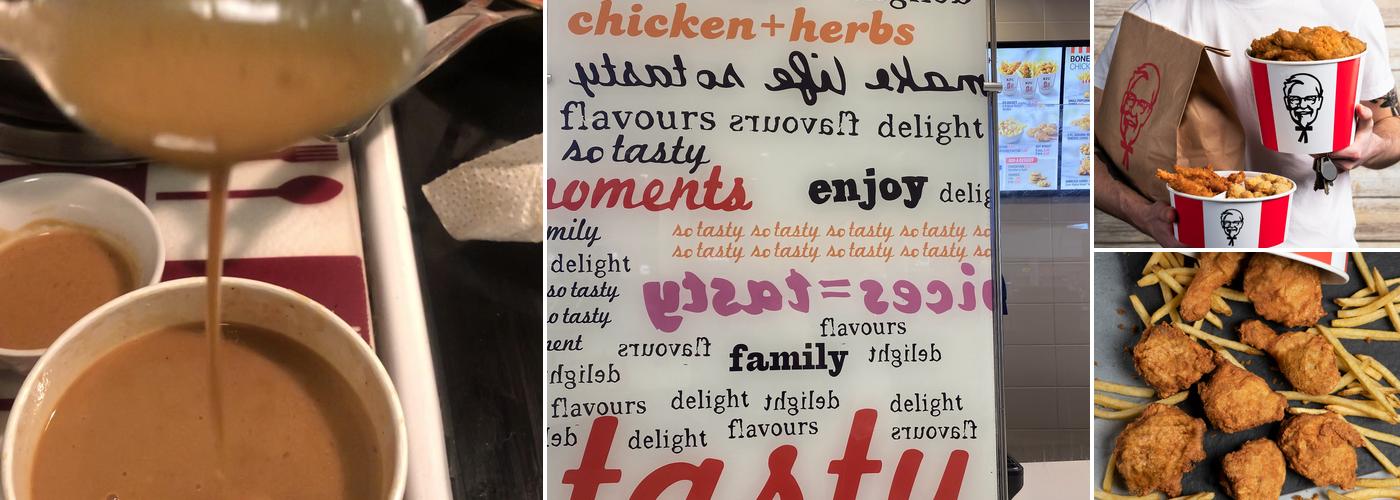 chicken+herbs
make life so tasty
flavours flavours delight
so tasty
moments enjoy
so tasty so tasty so tasty so tasty
so tasty so tasty so tasty so tasty
delight
so tasty
so tasty
spices=tasty
flavours
flavours family delight
delight
flavours delight delight delight
delight flavours flavours
tasty
BONE